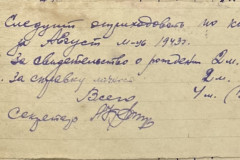 Следует оприходовать по к
за Август м-ць 1943 г.
За свидетельство о рожден 2 м.
За справку 2 м.
Всего 4 м.
Секретар